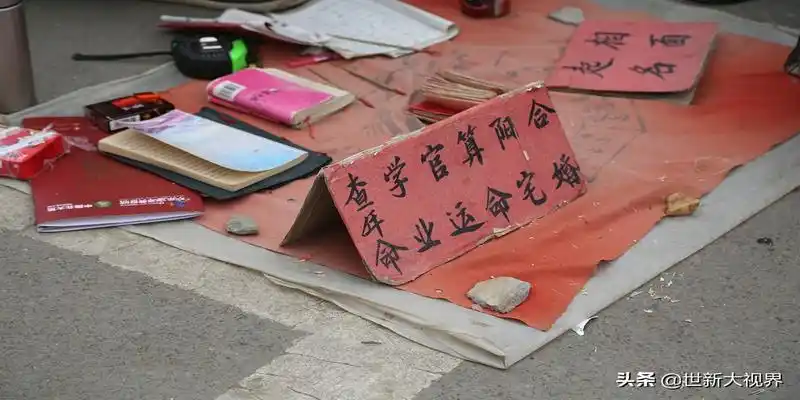 相面
起名
查命
学业
官运
算命
阳宅
合婚
头条 @世新大视界